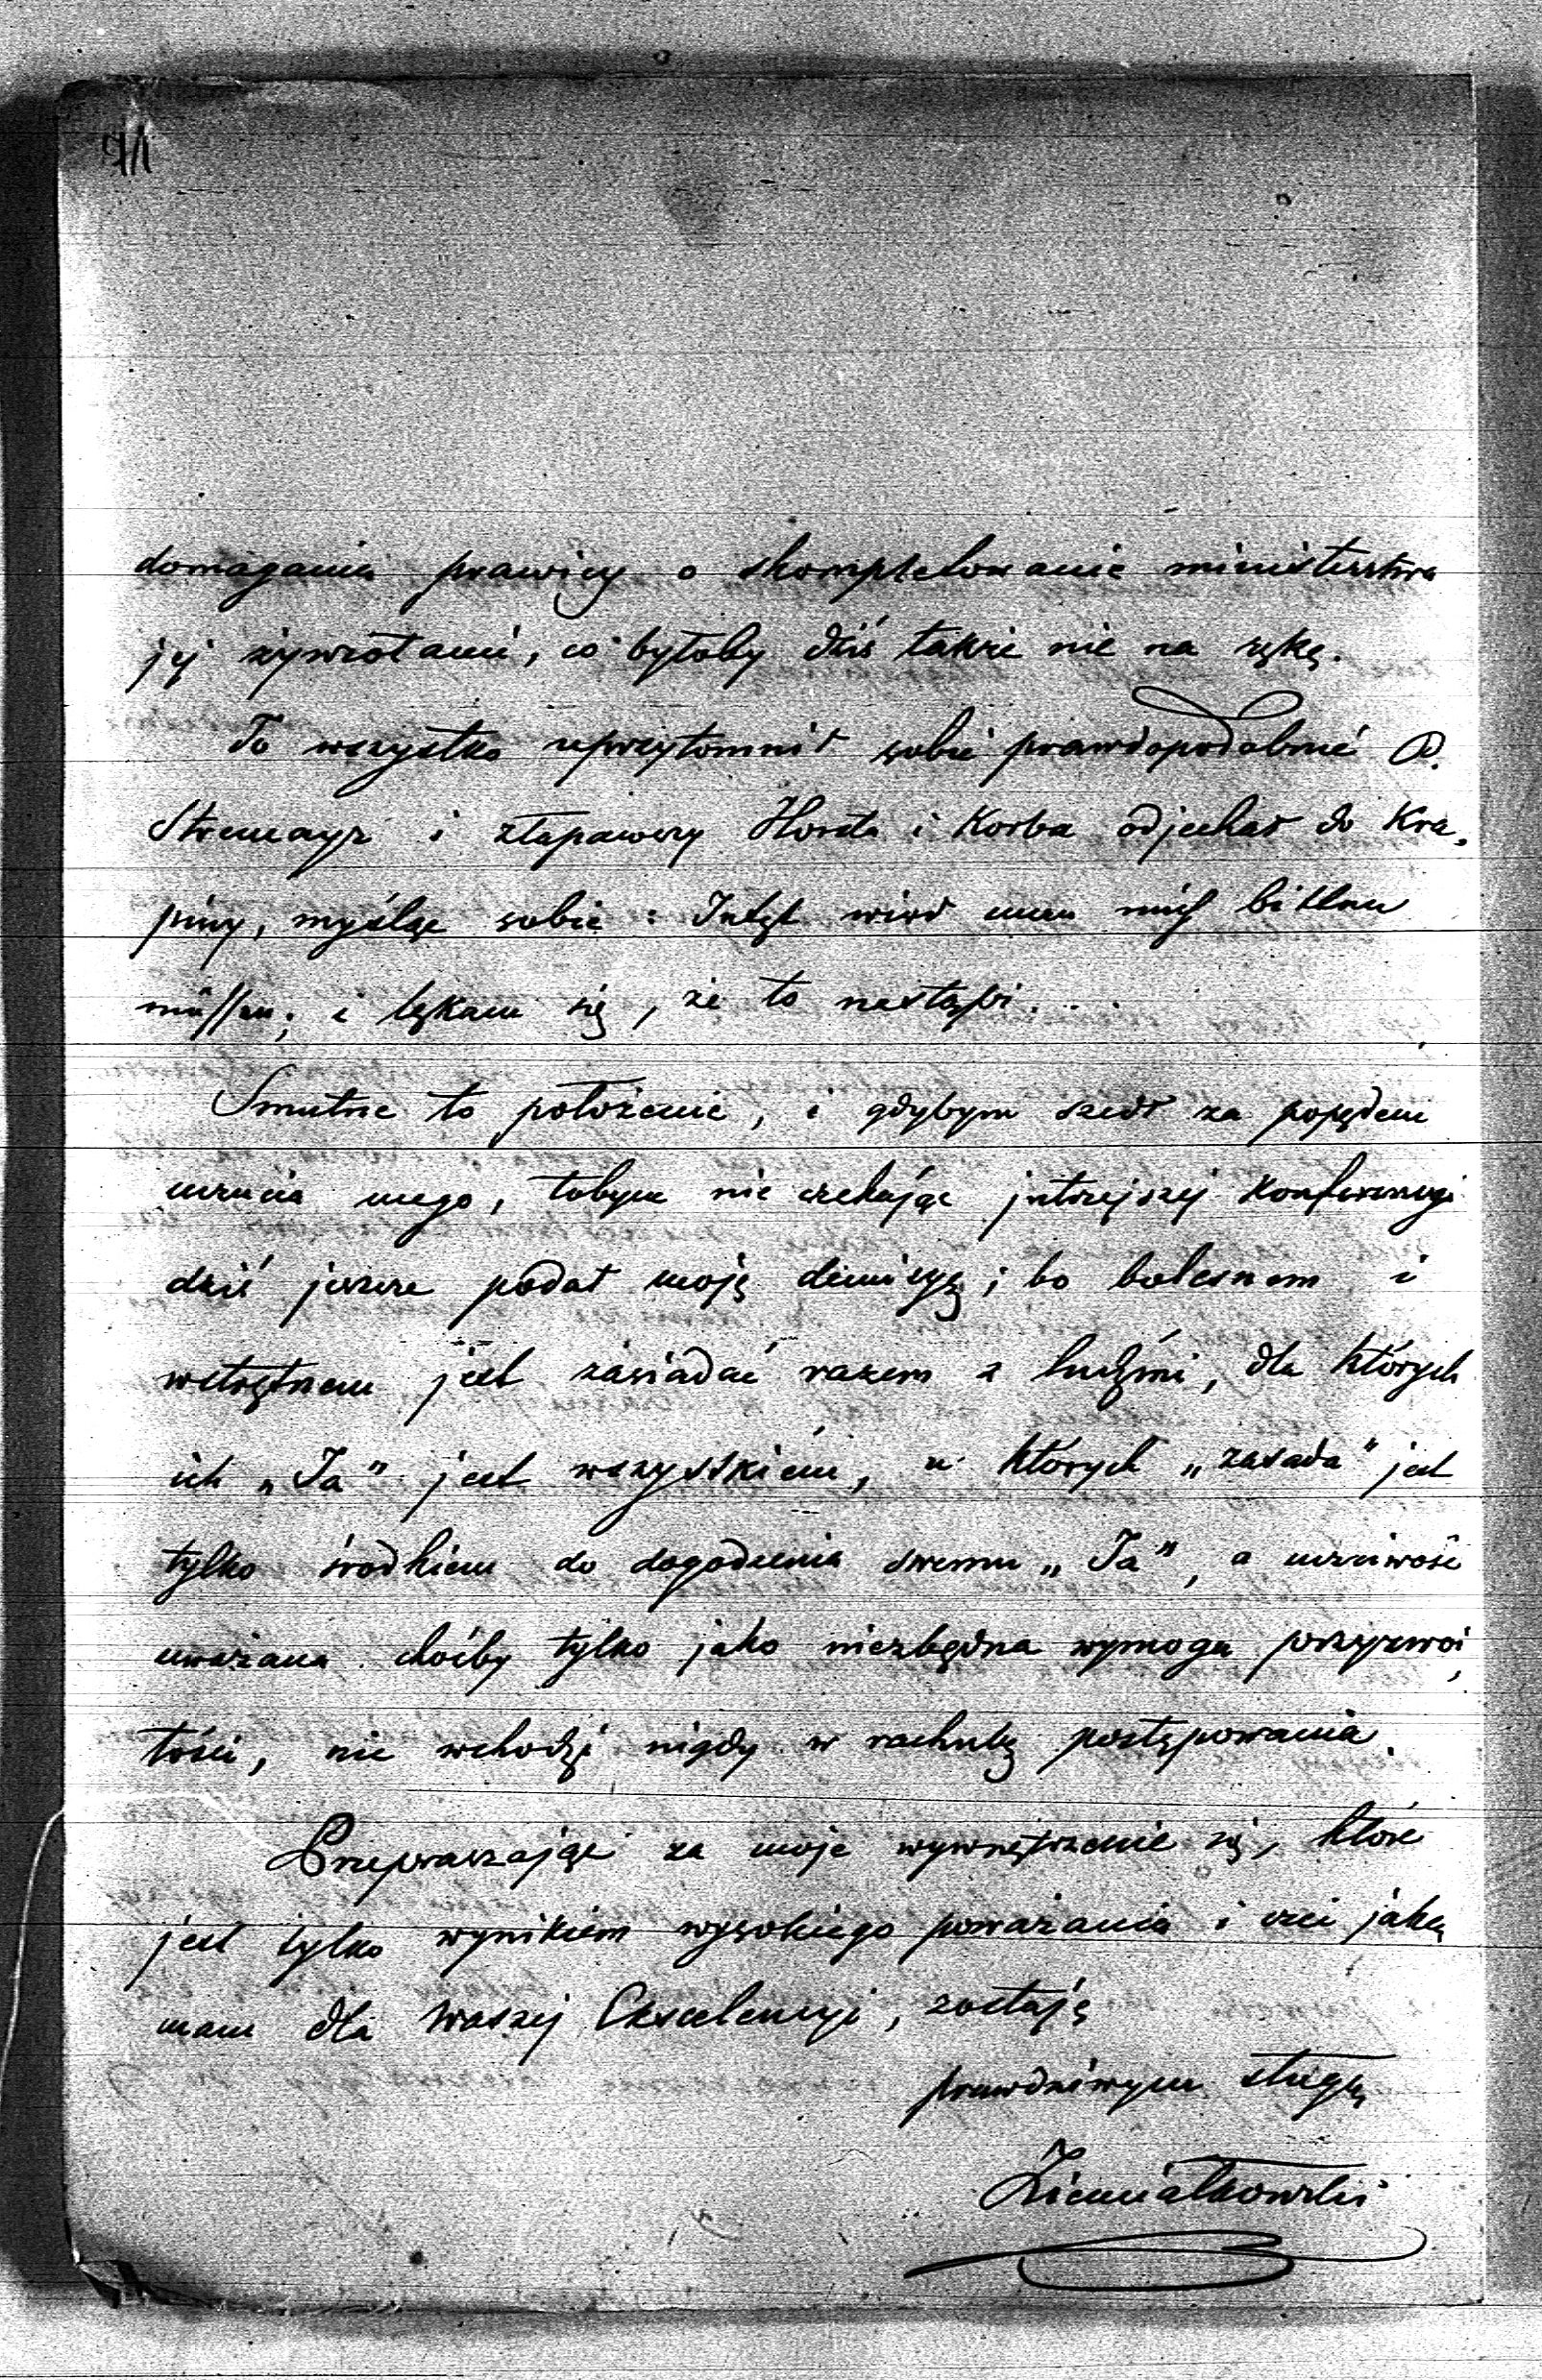 domagania prawicy o skompletowanie ministerstwa
jej żywiołami, co byłoby dziś także nie na rękę.
To wszystko uprzytomnił sobie prawdopodobnie P.
Stremayr i złapawszy Horsta i Korba odjechał do Kra„
piny, myśląc sobie: Jetzt wird man mich bitten
müssen; i lękam się, że to nastąpi...
Smutne to położenie, i gdybym szedł za popędem
uczucia mego, tobym nie czekając jutrzejszej konferencyi
dziś jeszcze podał moję dimisyę; bo bolesnem i
wstrętnem jest zasiadać razem z ludźmi, dla których
ich „Ja” jest wszystkiém, u których „zasada” jest
tylko środkiem do dogodzenia swemu „Ja”, a uczciwość
uważana choćby tylko jako niezbędna wymoga przyzwoi„
tości, nie wchodzi nigdy w rachubę postępowania.
Przepraszając za moje wywnętrzenie się, które
jest tylko wynikiem wysokiego poważania i czci jaką
mam dla Waszej Ekscelencyi, zostaję
prawdziwym sługą
Ziemiałkowski